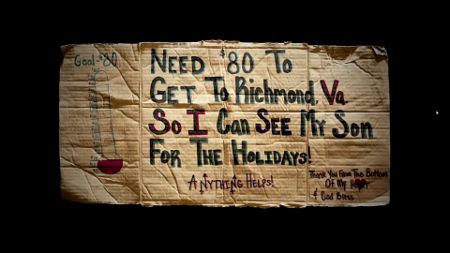 Goal-$80
NEED $80 TO
GET To Richmond, Va.
So I CAN SEE MY SON
FOR THE HOLIDAYS!
ANYTHING HELPS!
Thank You From The Bottom
Of My
& God Bless